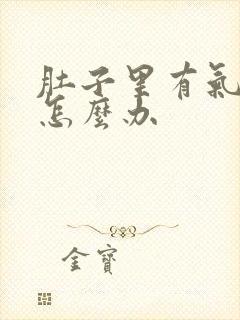 肚子里有氣
怎麼办
金寶